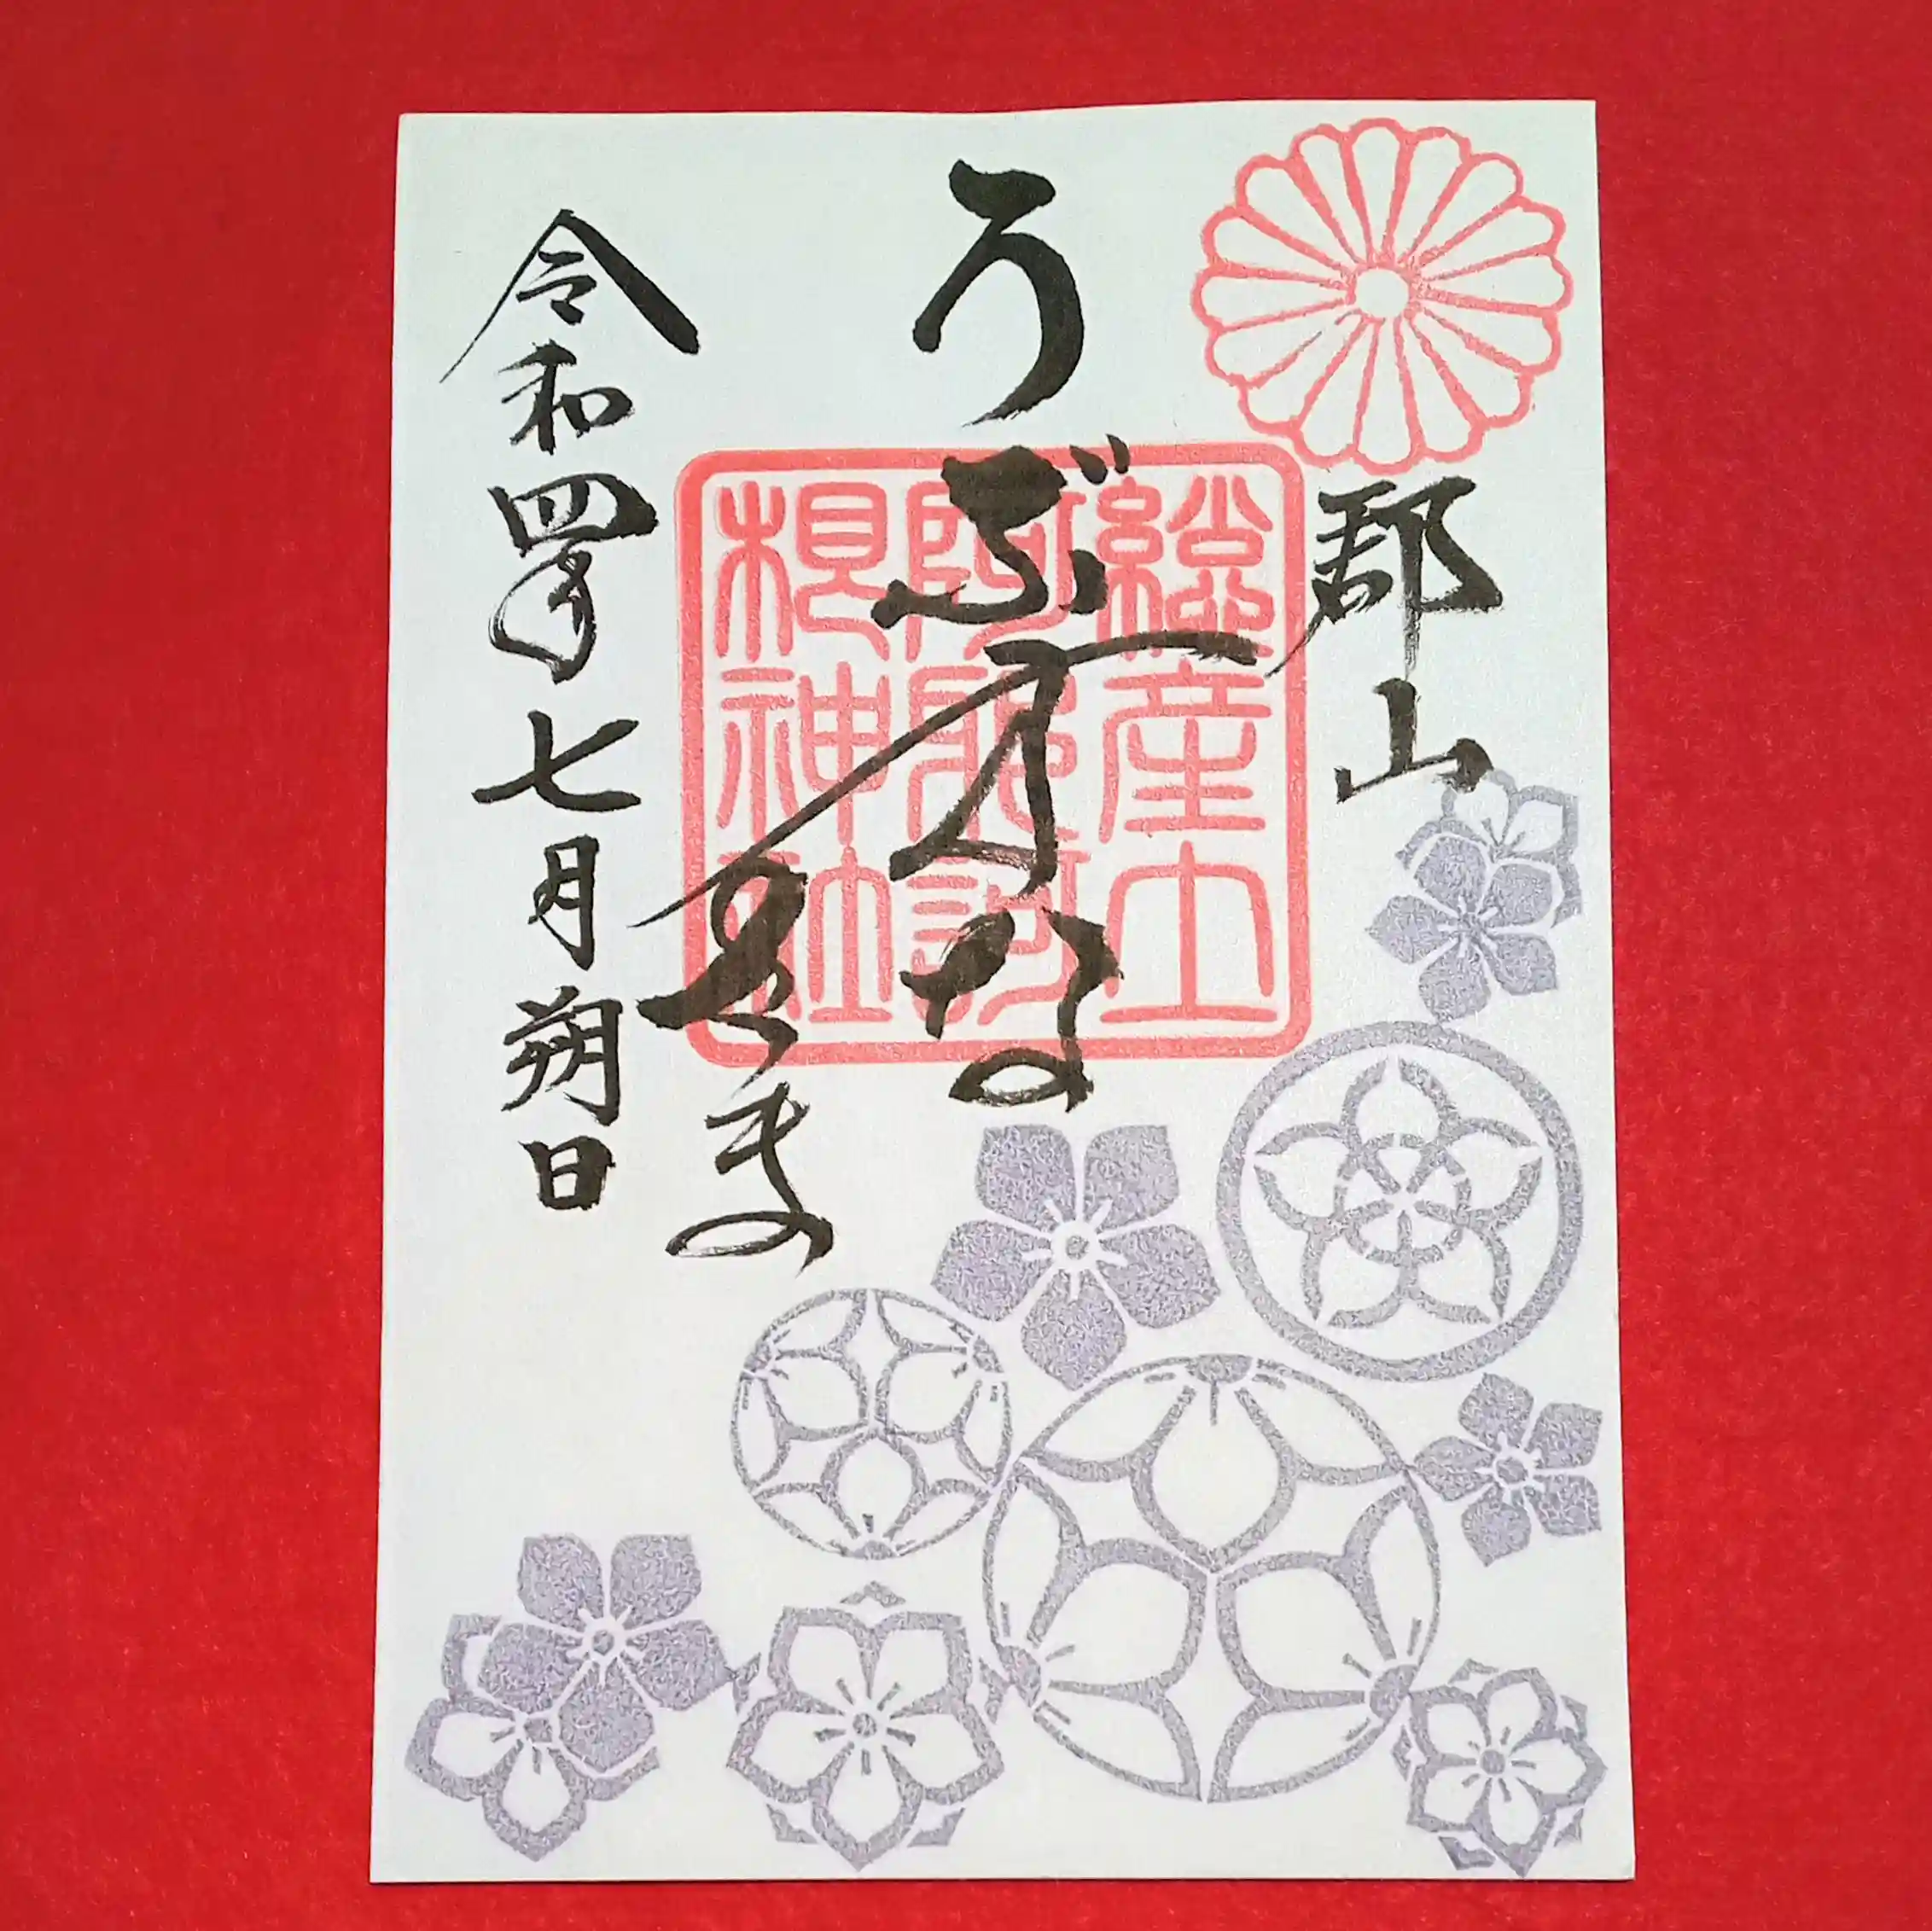 郡山
うぶすな
さま
令和四年七月朔日
総産土
阿邪訶
根神社